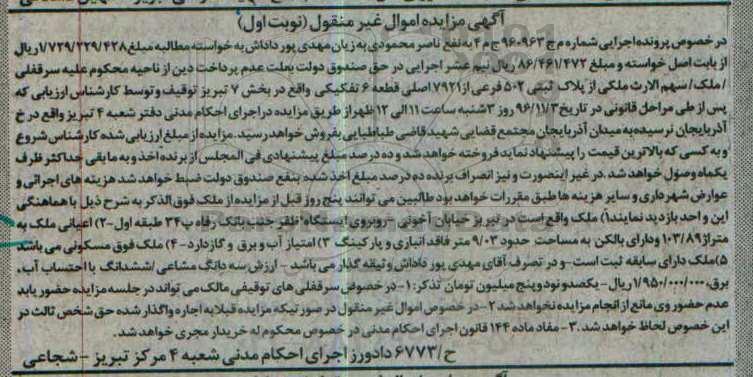 آگهی مزایده اموال غیر منقول (نوبت اول)
در خصوص پرونده اجرایی شماره م ج ۹۶۰۹۶۳ ج م ۴ به نفع ناصر محمودی به زیان مهدی پور داداش به خواسته مطالبه مبلغ ۱/۷۲۹/۲۲۹/۴۲۸ ریال
از بابت اصل خواسته و مبلغ ۸۶/۴۶۱/۴۷۲ ریال نیم عشر اجرایی در حق صندوق دولت بعلت عدم پرداخت دین از ناحیه محکوم علیه سرقفلی
/ملک/ سهم الارث ملکی از پلاک ثبتی ۵۰۲ فرعی از ۷۹۲۱ اصلی قطعه ۶ تفکیکی واقع در بخش ۷ تبریز توقیف و توسط کارشناس ارزیابی که
پس از طی مراحل قانونی در تاریخ ۹۶/۱۱/۳ روز ۳شنبه ساعت ۱۱ الی ۱۲ ظهر از طریق مزایده در اجرای احکام مدنی دفتر شعبه ۴ تبریز واقع در خ
آذربایجان نرسیده به میدان آذربایجان مجتمع قضایی شهید قاضی طباطبایی بفروش خواهد رسید. مزایده از مبلغ ارزیابی شده کارشناس شروع
و به کسی که بالاترین قیمت را پیشنهاد نماید فروخته خواهد شد و ده درصد مبلغ پیشنهادی فی المجلس از برنده اخذ و به مابقی حداکثر ظرف
یکماه وصول خواهد شد. در غیر اینصورت و نیز انصراف برنده ده درصد مبلغ اخذ شده بنفع صندوق دولت ضبط خواهد شد هزینه های اجرائی و
عوارض شهرداری و سایر هزینه ها طبق مقررات خواهد بود طالبین می توانند پنج روز قبل از مزایده از ملک فوق الذکر به شرح ذیل با هماهنگی
این واحد بازدید نمایند ۱) ملک واقع است در تبریز خیابان آخونی - روبروی ایستگاه جنب بانک رفاه پ ۳۴ طبقه اول -۲) اعیانی ملک به
متراژ ۱۰۳/۸۹ و دارای بالکن به مساحت حدود ۹/۰۳ متر فاقد انباری و پارکینگ ۳) امتیاز آب و برق و گاز دارد -۴) ملک فوق مسکونی می باشد
۵) ملک دارای سابقه ثبت است - و در تصرف آقای مهدی پور داداش وثیقه گذار می باشد - ارزش سه دانگ مشاعی /ششدانگ با احتساب آب،
برق، ۱/۹۵۰/۰۰۰/۰۰۰ ریال - یکصد و نود و پنج میلیون تومان تذکر: ۱- در خصوص سرقفلی های توقیفی مالک می تواند در جلسه مزایده حضور یابد
عدم حضور وی مانع از انجام مزایده نخواهد شد ۲- در خصوص اموال غیر منقول در صورتیکه مزایده قبلا به اجاره واگذار شده حق شخص ثالث در
این خصوص لحاظ خواهد شد. ۳- مفاد ماده ۱۴۴ قانون اجرای احکام مدنی در خصوص محکوم له خریدار مجری خواهد شد.
ح/۶۷۷۳ دادورز اجرای احکام مدنی شعبه ۴ مرکز تبریز - شجاعی